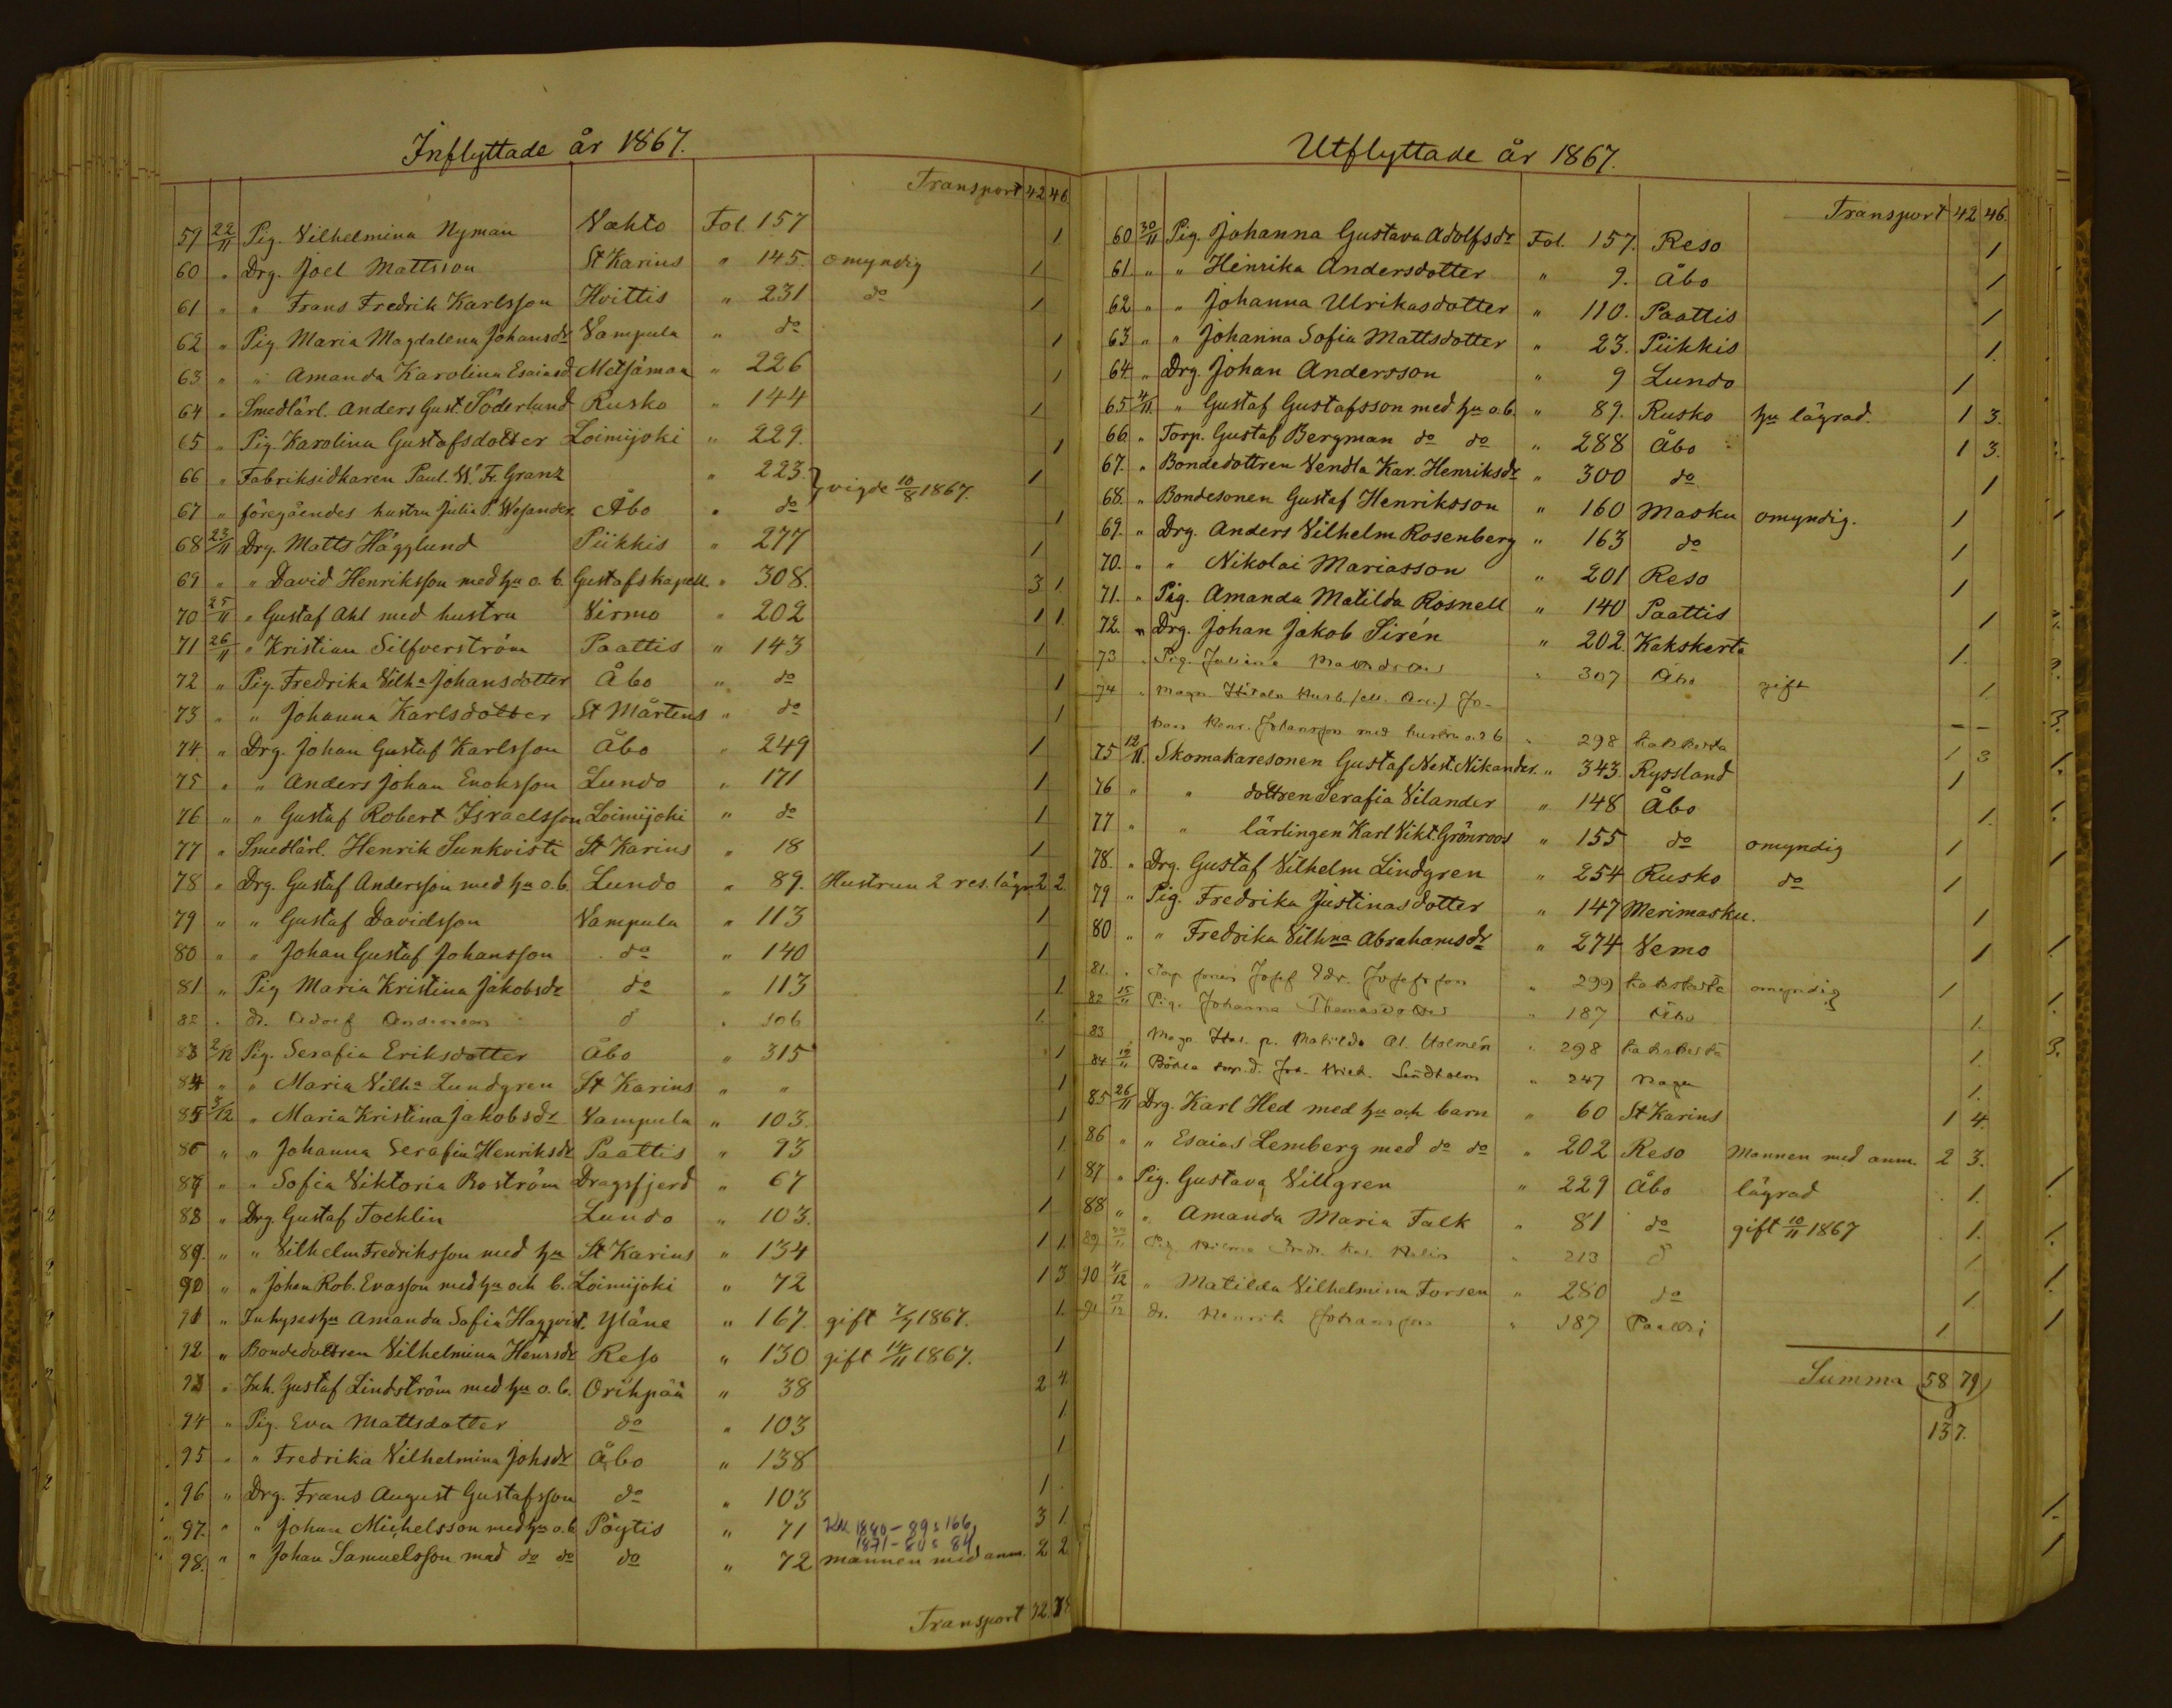 Inflyttade år 1867.
Transport 42 46.
59 22/11 Pig. Vilhelmina Nyman Nahto Fol. 157 1
60 " Drg. Joel Mattsson St Karins " 145. omyndig 1
61 " " Frans Fredrik Karlsson Hvittis " 231 do 1
62 " Pig. Maria Magdalena Johansdr Vampula " do 1
63 " " Amanda Karolina Esaiasd. Metsämaa " 226 1
64 " Smedlärl. Anders Gust. Söderlund Rusko " 144 1
65 " Pig. Karolina Gustafsdotter Loimijoki " 229. 1
66 " Fabriksidkaren Paul. W. Fr. Granz " 223. 1
vigde 10/8 1867.
67 " föregåendes hustru Julia P. Åbo " do 1
68 23/11 Drg. Matts Hägglund Piikkis " 277 1
69 " " David Henriksson med hu o. b. Gustafs kapell. " 308. 3 1.
70 25/11 " Gustaf Ahl med hustru Virmo " 202 1 1.
71 26/11 " Kristian Silfverström Paattis " 143 1
72 " Pig. Fredrika Vilha Johansdotter Åbo " do 1
73 " " Johanna Karlsdotter St Mårtens " do 1
74. " Drg. Johan Gustaf Karlsson Åbo " 249 1
75 " " Anders Johan Enoksson Lundo " 171 1
76 " " Gustaf Robert Israelsson Loimijoki " do 1
77 " Smedlärl. Henrik Sunkvist St Karins " 18 1
78 " Drg. Gustaf Andersson med hu o. b. Lundo " 89. Hustrun 2 res. lägr. 2 2
79 " " Gustaf Davidsson Vampula " 113 1
80 " " Johan Gustaf Johansson do " 140 1
81 " Pig Maria Kristina Jakobsdr do " 113 1
82 " dr. Adolf Andersson d " 306 1.
83 2/12 Pig. Serafia Eriksdotter Åbo " 315 1
84 " " Maria Vilha Lundgren St Karins " " 1
85 3/12 " Maria Kristina Jakobsdr Vampula " 103. 1
86 " " Johanna Serafia Henriksdr Paattis " 93 1
87 " " Sofia Viktoria Boström Dragsfjerd " 67 1
88 " Drg. Gustaf Tocklin Lundo " 103. 1
89. " " Vilhelm Fredriksson med hu St Karins " 134 1 1.
90 " " Johan Rob. Evasson med hu och b. Loimijoki " 72 1 3
91 " Inhyseshu Amanda Sofia Hagqvist. Yläne " 167. gift 1867. 1.
92 " Bondedottren Vilhelmina Henrsdr Reso " 130 gift 14/11 1867. 1
93 " Inh. Gustaf Lindström med hu o. b. Orihpää " 38 2 4
94 " Pig. Eva Mattsdotter do " 103 1
95 " " Fredrika Vilhelmina Johsdr Åbo " 138 1
96 " Drg. Frans August Gustafsson do " 103 1
97. " " Johan Michelsson med hu o. b. Pöytis " 71 KK 1880-89 s 166, 3 1.
1871-80 s 84
98. " " Johan Samuelsson med do do do " 72 mannen med anm. 2 2
Transport 72. 78
Utflyttade år 1867.
Transport 42 46.
60 30/11 Pig. Johanna Gustava Adolfsdr Fol. 157. Reso 1
61 " " Henrika Andersdotter " 9. Åbo 1
62 " " Johanna Ulrikasdotter " 110. Paattis 1
63 " " Johanna Sofia Mattsdotter " 23. Piikkis 1.
64 " Drg. Johan Andersson " 9 Lundo 1
65 4/11 " Gustaf Gustafsson med hu o. b. " 89. Rusko hu lägrad. 1 3.
66 " Torp. Gustaf Bergman do do " 288 Åbo 1 3.
67. " Bondedottren Vendla Kar. Henriksdr " 300 do 1
68. " Bondesonen Gustaf Henriksson " 160 Masku omyndig. 1
69. " Drg. Anders Vilhelm Rosenberg " 163 do 1
70. " " Nikolai Mariasson " 201 Reso 1
71. " Pig. Amanda Matilda Rosnell " 140 Paattis 1
72. " Drg. Johan Jakob Sirén " 202. Kakskerta 1.
73 " Pig. Juliana " 307 Åbo gift 1.
74 " Magn. Jo- - -
Henr. Johansson med hustru o. 2 b " 298 Kakskerta 1 3
75 12/11. Skomakaresonen Gustaf Nest. Nikander. " 343. Ryssland 1
76 " " dottren Serafia Vilander " 148 Åbo 1.
77 " " lärlingen Karl Vikt. Grönroos " 155 do omyndig 1
78. " Drg. Gustaf Vilhelm Lindgren " 254 Rusko do 1
79 " Pig. Fredrika Justinasdotter " 147 Merimasku. 1
80 " " Fredrika Vilhna Abrahamsdr " 274 Vemo 1
81. " Torp. sonen Josef Edv. Josefsson " 299 Kakskerta omyndig 1
82 15/11 Pig. Johanna Thomasdotter " 187 Åbo 1.
83 " p. Matilda Al. Holmén " 298 Kakskerta 1.
84 19/11 Lindholm " 247 Nagu 1.
85 26/11 Drg. Karl Hed med hu och barn " 60 St Karins 1 4.
86 " " Esaias Lemberg med do do " 202 Reso Mannen med anm. 2 3.
87 " Pig. Gustava Villgren " 229 Åbo lägrad 1.
88 " " Amanda Maria Falk " 81 do gift 10/11 1867 1.
89 Pig " 213 d 1
90 4/12 " Matilda Vilhelmina Forsen " 280 do 1.
91 17/12 dr. Henrik Johansson " 187 Paattis 1
Summa 58 79
137.